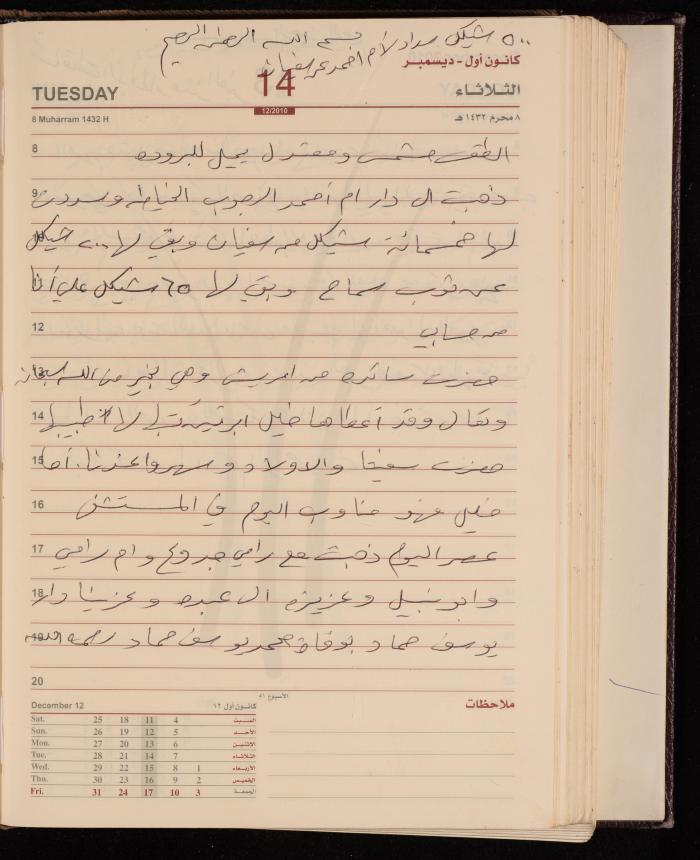 ٥٠٠ شيكل سداد لأم احمد عن سفيان
بسم الله الرحمن الرحيم
كانون أول - ديسمبر
TUESDAY 14 الثلاثاء
12/2010
8 Muharram 1432 H ٨ محرم ١٤٣٢ هـ
8 الطقس مشمس ومعتدل يميل للبروده
9 ذهبت الى دار ام أحمد الرجوب الخياطه وسددت
لها خمسمائة شيكل من سفيان وبقي لها ٢٠٠ شيكل
عن ثوب سماح وبقي لها ٦٥ شيكل علي أنا
12 من حسابي
13 حضرت سائده من امريش وهي بخير من الله سبحانه
14 وتعالى وقد أعطاها خليل ابرتين كتبها لها الطبيب
15 حضرت سفيتا والاولاد وسهروا عندنا. أما
16 خليل فهو مناوب اليوم في المستشفى
17 عصر اليوم ذهبت مع رامي جدوع وام رامي
18 وابو نبيل وعزيزه ال عبده وعزينا دار
19 يوسف حماد بوفاة محمد يوسف حماد رحمه الله
20
December 12 كانون أول ١٢ الأسبوع ٥١
Sat. 25 18 11 4 السبت
Sun. 26 19 12 5 الأحد
Mon. 27 20 13 6 الاثنين
Tue. 28 21 14 7 الثلاثاء
Wed. 29 22 15 8 1 الأربعاء
Thu. 30 23 16 9 2 الخميس
Fri. 31 24 17 10 3 الجمعة
ملاحظات